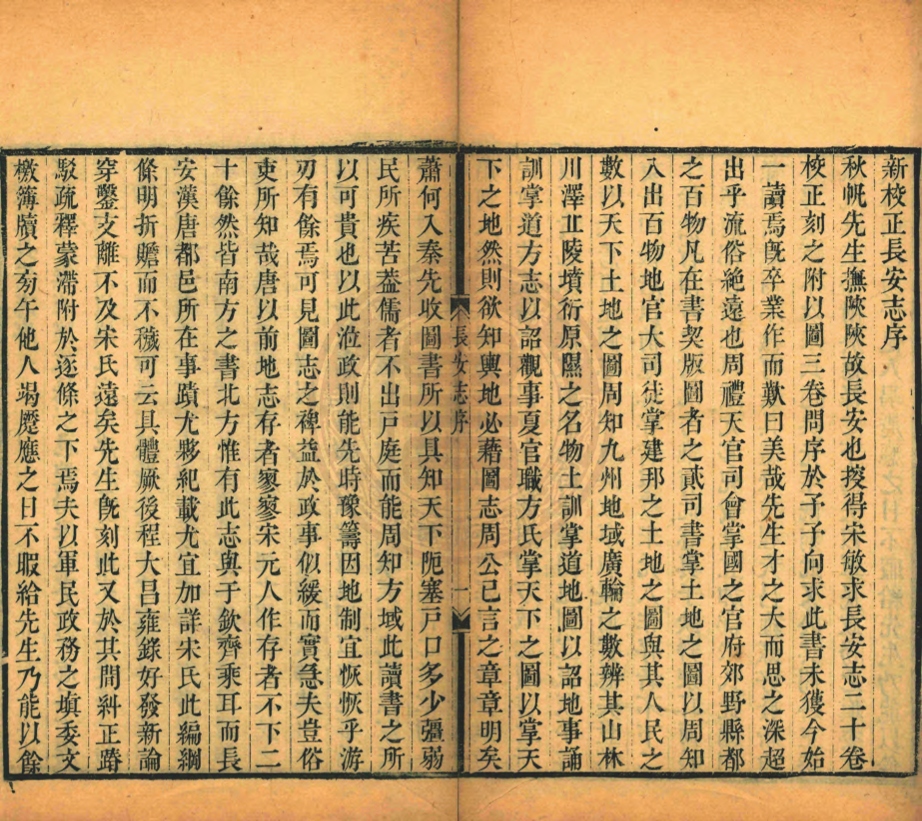 新校正長安志序
秋帆先生撫陝陝故長安也搜得宋敏求長安志二十卷
校正刻之附以圖三卷問序於予予向求此書未獲今始
一讀焉旣卒業作而歎曰美哉先生才之大而思之深超
出乎流俗絶遠也周禮天官司會掌國之官府郊野縣都
之百物凡在書契版圖者之貳司書掌土地之圖以周知
入出百物地官大司徒掌建邦之土地之圖與其人民之
數以天下土地之圖周知九州地域廣輪之數辨其山林
川澤丘陵墳衍原隰之名物土訓掌道地圖以詔地事誦
訓掌道方志以詔觀事夏官職方氏掌天下之圖以掌天
下之地然則欲知輿地必藉圖志周公已言之章章明矣
長安志序
一
蕭何入秦先收圖書所以具知天下阨塞戸口多少彊弱
民所疾苦葢儒者不出戸庭而能周知方域此讀書之所
以可貴也以此涖政則能先時豫籌因地制宜恢恢乎游
刃有餘焉可見圖志之裨益於政事似緩而實急夫豈俗
吏所知哉唐以前地志存者寥寥宋元人作存者不下二
十餘然皆南方之書北方惟有此志與于欽齊乘耳而長
安漢唐都邑所在事蹟尤夥紀載尤宜加詳宋氏此編綱
條明折贍而不穢可云具體厥後程大昌雍錄好發新論
穿鑿支離不及宋氏遠矣先生旣刻此又於其間糾正踳
駁疏釋蒙滯附於逐條之下焉夫以軍民政務之填委文
檄簿牘之旁午他人竭蹷應之日不暇給先生乃能以餘